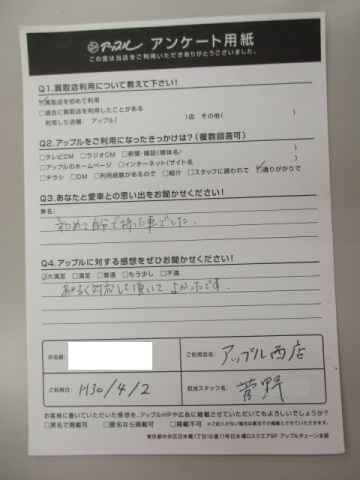 アップル アンケート用紙
この度は当店をご利用いただきありがとうございました。
Q1.買取店利用について教えて下さい!
☑買取店を初めて利用
□過去に買取店を利用したことがある
利用した店舗: アップル( )店 その他( )
Q2.アップルをご利用になったきっかけは?(複数回答可)
□テレビCM □ラジオCM □新聞・雑誌(媒体名/ )
□アップルのホームページ □インターネット(サイト名 )
□チラシ □DM □利用経験があるので □紹介 □スタッフに誘われて ☑通りがかりで
Q3.あなたと愛車との思い出をお聞かせください!
車名:
初めて自分で持った車でした.
Q4.アップルに対する感想をぜひお聞かせください!
☑大満足 □満足 □普通 □もう少し □不満
あかるく対応して頂いてよかったです.
お名前
ご利用店名: アップル西店
ご利用日: H30/4/2
担当スタッフ名: 菅野
お客様に書いていただいた感想を、アップルHPや広告に掲載させていただいてもよろしいでしょうか?
□実名で掲載可 □匿名なら掲載可 □掲載不可 ※ご記入がない場合は匿名での掲載とさせていただきます。
東京都中央区日本橋1丁目16番11号日本橋Dスクエア9F アップルチェーン本部